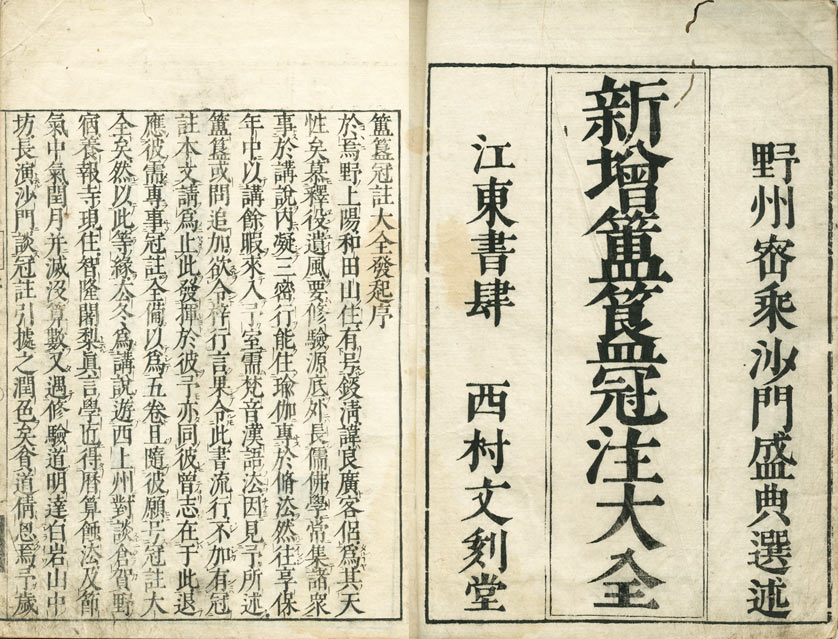 野州密乘沙門盛典選述
新增簠簋冠注大全
江東書肆　西村文刻堂
簠簋冠註大全發起序
於焉野上陽和田山住有号鍐淸諱良廣客侶爲其天
性矣慕釋役遺風要修驗源底外長儒佛學常集諸衆
事於講說内凝三密行能住瑜伽專於脩法然往享保
年中以講餘暇來入予室需梵音漢語法因見予所述
簠簋或問追加欲令梓行言果令此書流行不加有冠
註本文請爲止此發揮於彼予亦同彼曾志在于此退
應彼需專事冠註全備以爲五卷且隨彼願号冠註大
全矣然以此等緣去冬爲講說遊西上州對談倉賀野
宿養報寺現住智隆闍梨眞言學也得曆算蝕法及節
氣中氣閏月并滅沒算數又遇修驗道明達白岩山中
坊長演沙門談冠註引據之潤色矣貧道倩思焉予歲